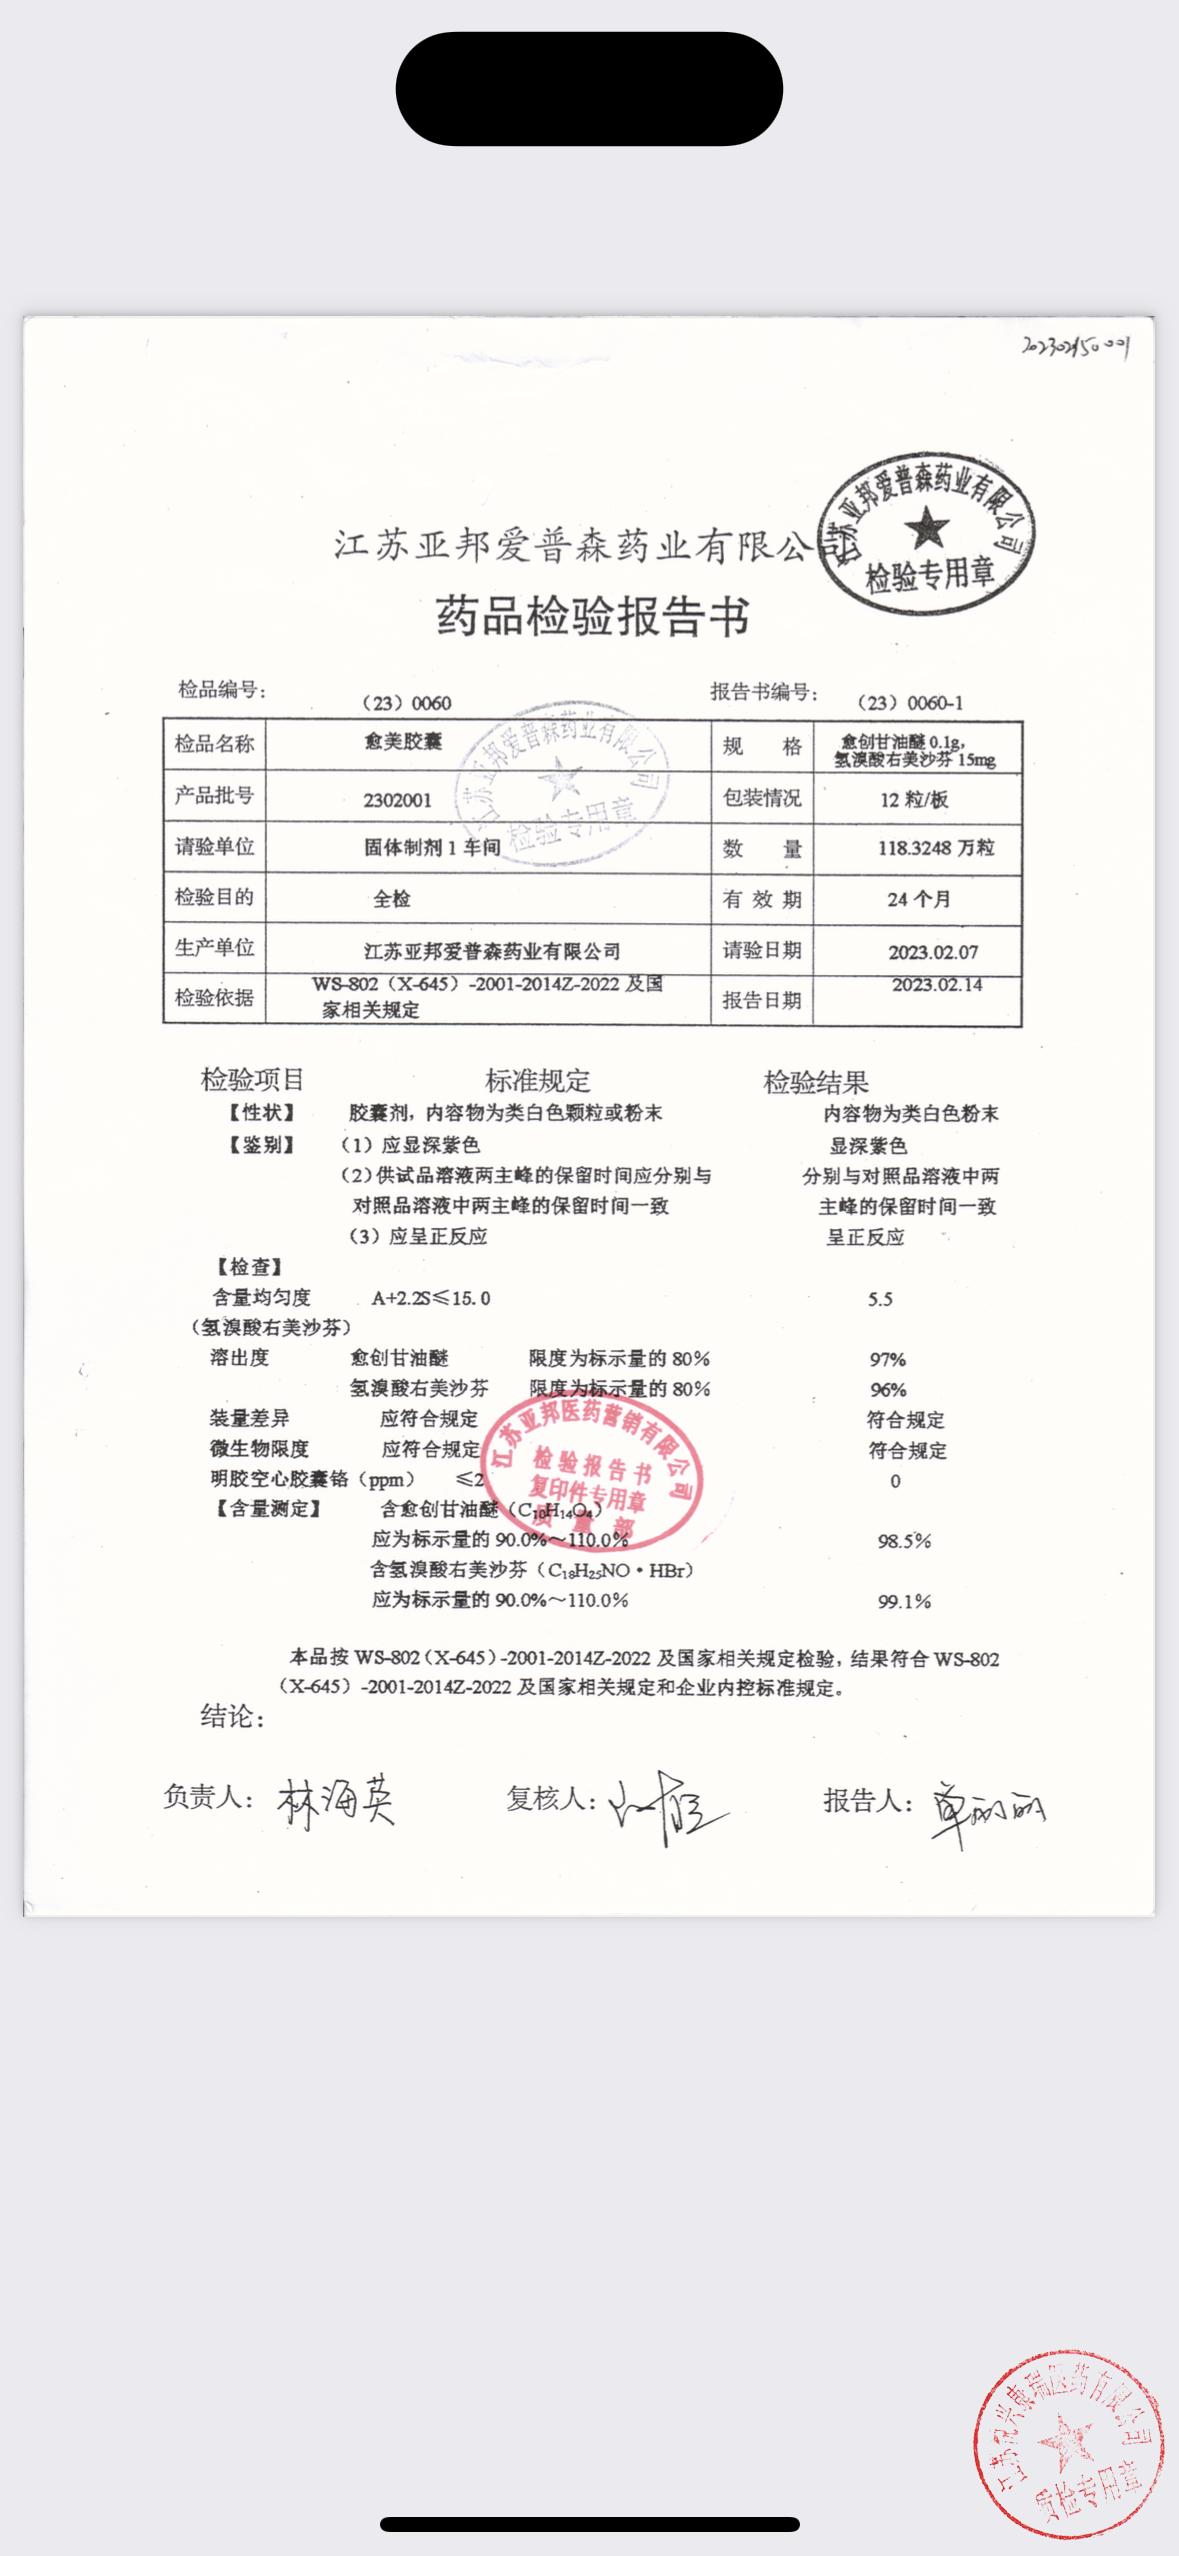 202302150001
江苏亚邦爱普森药业有限公司
江苏亚邦爱普森药业有限公司
检验专用章
药品检验报告书
检品编号： （23）0060 报告书编号： （23）0060-1
检品名称 愈美胶囊 规 格 愈创甘油醚 0.1g，
氢溴酸右美沙芬 15mg
江苏亚邦爱普森药业有限公司
检验专用章
产品批号 2302001 包装情况 12 粒/板
请验单位 固体制剂 1 车间 数 量 118.3248 万粒
检验目的 全检 有 效 期 24 个月
生产单位 江苏亚邦爱普森药业有限公司 请验日期 2023.02.07
检验依据 WS-802（X-645）-2001-2014Z-2022 及国 报告日期 2023.02.14
家相关规定
检验项目 标准规定 检验结果
【性状】 胶囊剂，内容物为类白色颗粒或粉末 内容物为类白色粉末
【鉴别】 （1）应显深紫色 显深紫色
（2）供试品溶液两主峰的保留时间应分别与 分别与对照品溶液中两
对照品溶液中两主峰的保留时间一致 主峰的保留时间一致
（3）应呈正反应 呈正反应
【检查】
含量均匀度 A+2.2S≤15.0 5.5
（氢溴酸右美沙芬）
溶出度 愈创甘油醚 限度为标示量的 80% 97%
氢溴酸右美沙芬 限度为标示量的 80% 96%
装量差异 应符合规定 符合规定
微生物限度 应符合规定 符合规定
明胶空心胶囊铬（ppm） ≤2 0
江苏亚邦医药营销有限公司
检验报告书
复印件专用章
质量部
【含量测定】 含愈创甘油醚（C₁₀H₁₄O₄）
应为标示量的 90.0%～110.0% 98.5%
含氢溴酸右美沙芬（C₁₈H₂₅NO·HBr）
应为标示量的 90.0%～110.0% 99.1%
本品按 WS-802（X-645）-2001-2014Z-2022 及国家相关规定检验，结果符合 WS-802
（X-645）-2001-2014Z-2022 及国家相关规定和企业内控标准规定。
结论：
负责人：林海英 复核人： 报告人：单丽丽
医药有限公司
质检专用章